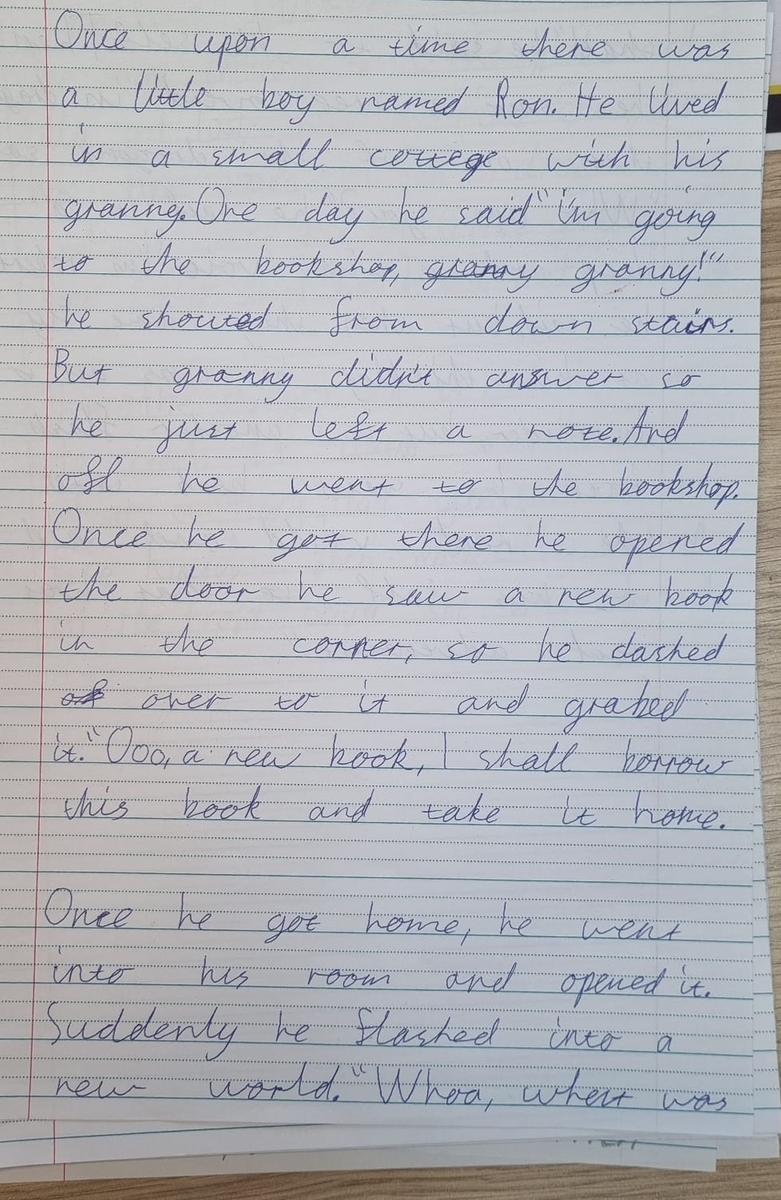 Once upon a time there was
a little boy named Ron. He lived
in a small cottege with his
granny. One day he said "i'm going
to the bookshop, granny granny!"
he shouted from down stairs.
But granny didn't answer so
he just left a note. And
off he went to the bookshop.
Once he got there he opened
the door he saw a new book
in the corner, so he dashed
of over to it and grabed
it. "Ooo, a new book, I shall borrow
this book and take it home.
Once he got home, he went
into his room and opened it.
Suddenly he flashed into a
new world. "Whoa, whert was